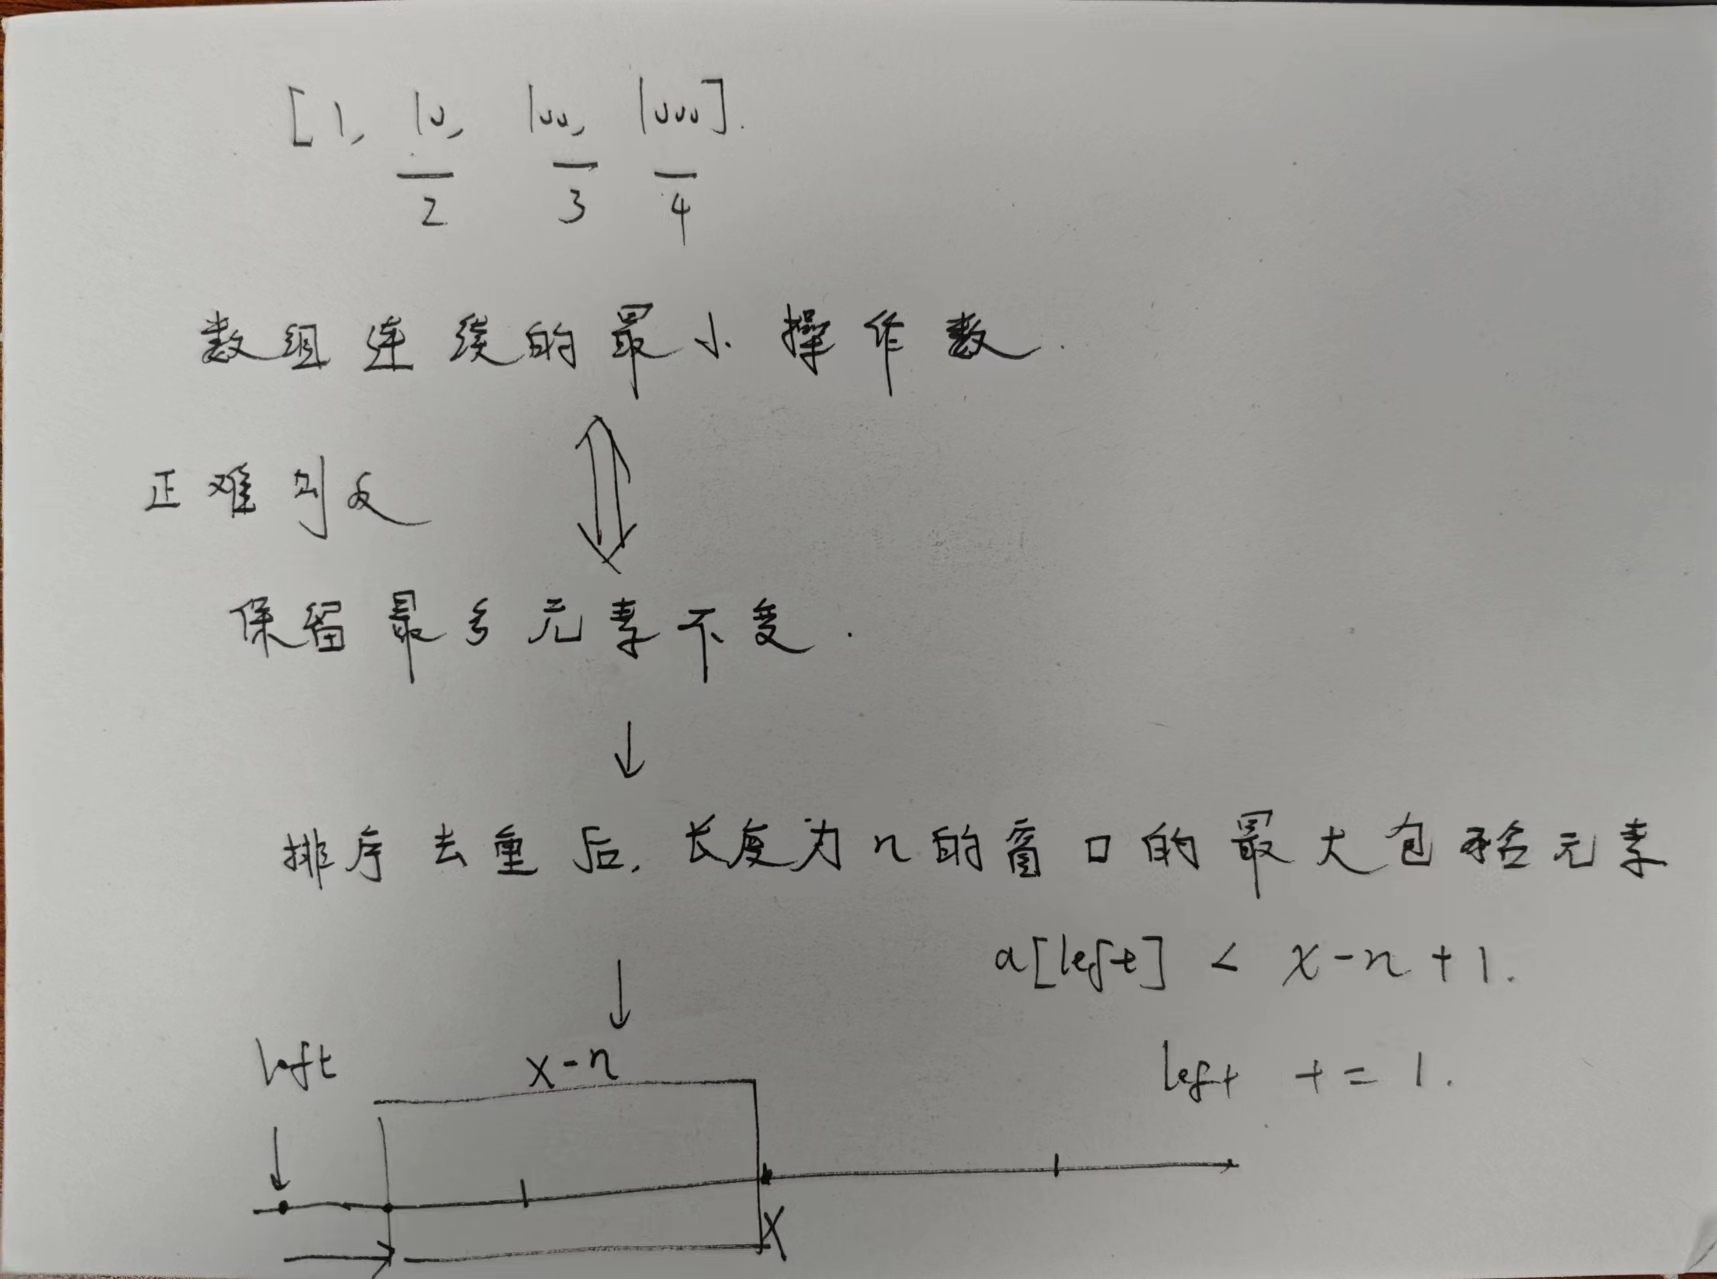 [1, 10, 100, 1000].
2 3 4
数组连续的最小操作数.
正难则反
保留最多元素不变.
排序去重后,长度为n的窗口的最大包括元素
a[left] < x-n+1.
left x-n
left += 1.
x